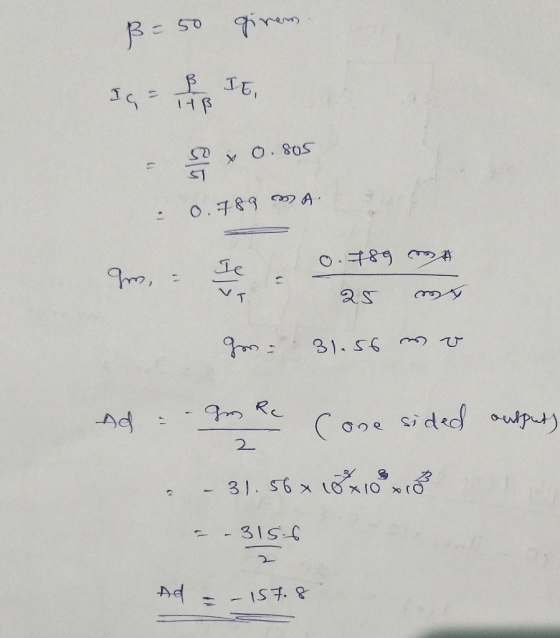 β = 50 given.
I_C1 = β/(1+β) I_E1
= 50/51 × 0.805
= 0.789 mA.
gm1 = I_C/V_T = 0.789 mA / 25 mV
gm = 31.56 m ℧
Ad = - gm Rc / 2 (one sided output)
= - 31.56 × 10^-3 × 10 × 10^3
= - 315.6 / 2
Ad = - 157.8